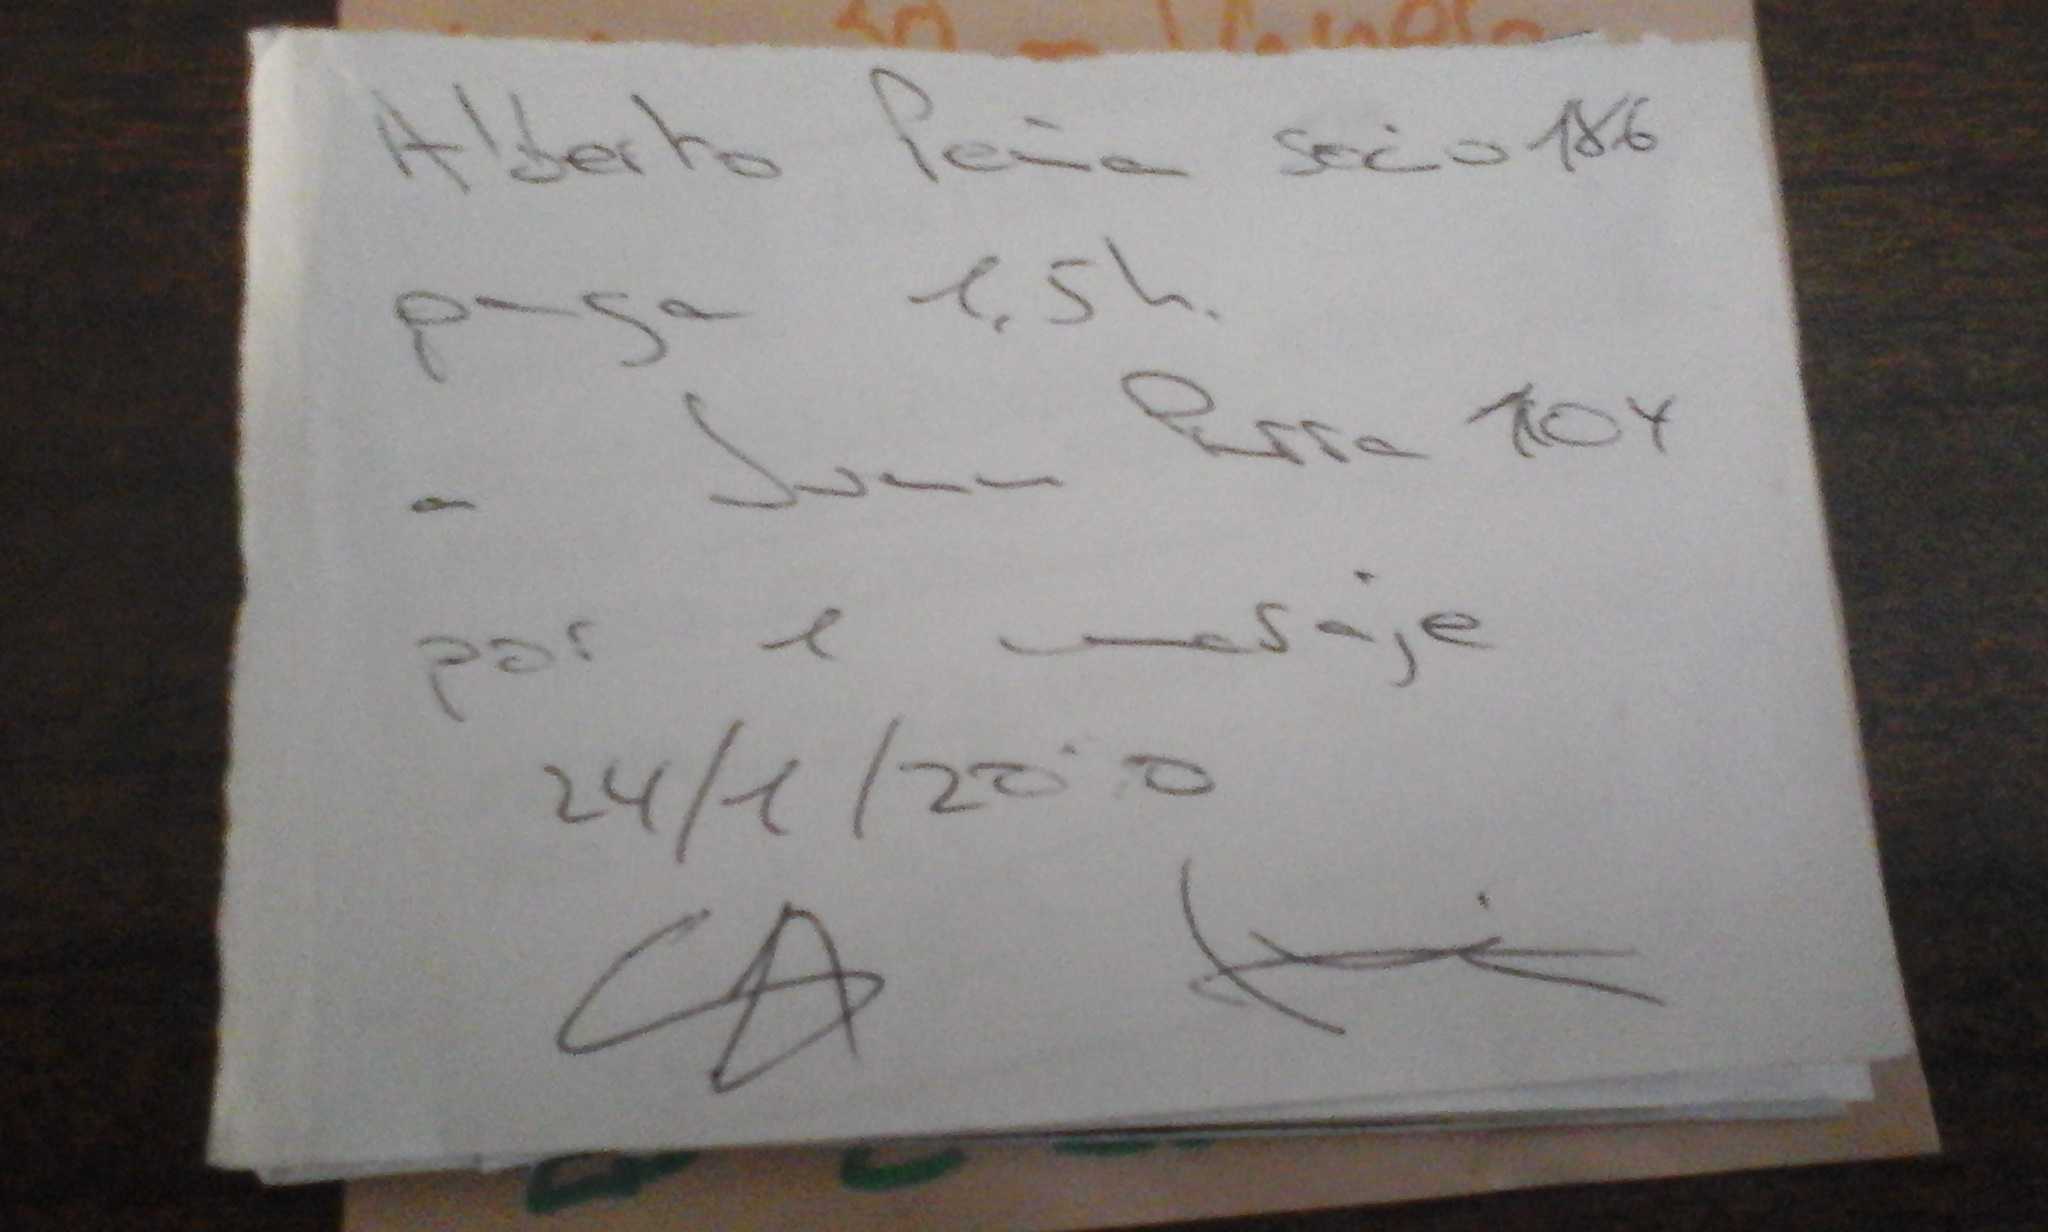 Alberto Peña socio 186
paga 1,5h.
a Juan Parra 104
por 1 masaje
24/1/2020